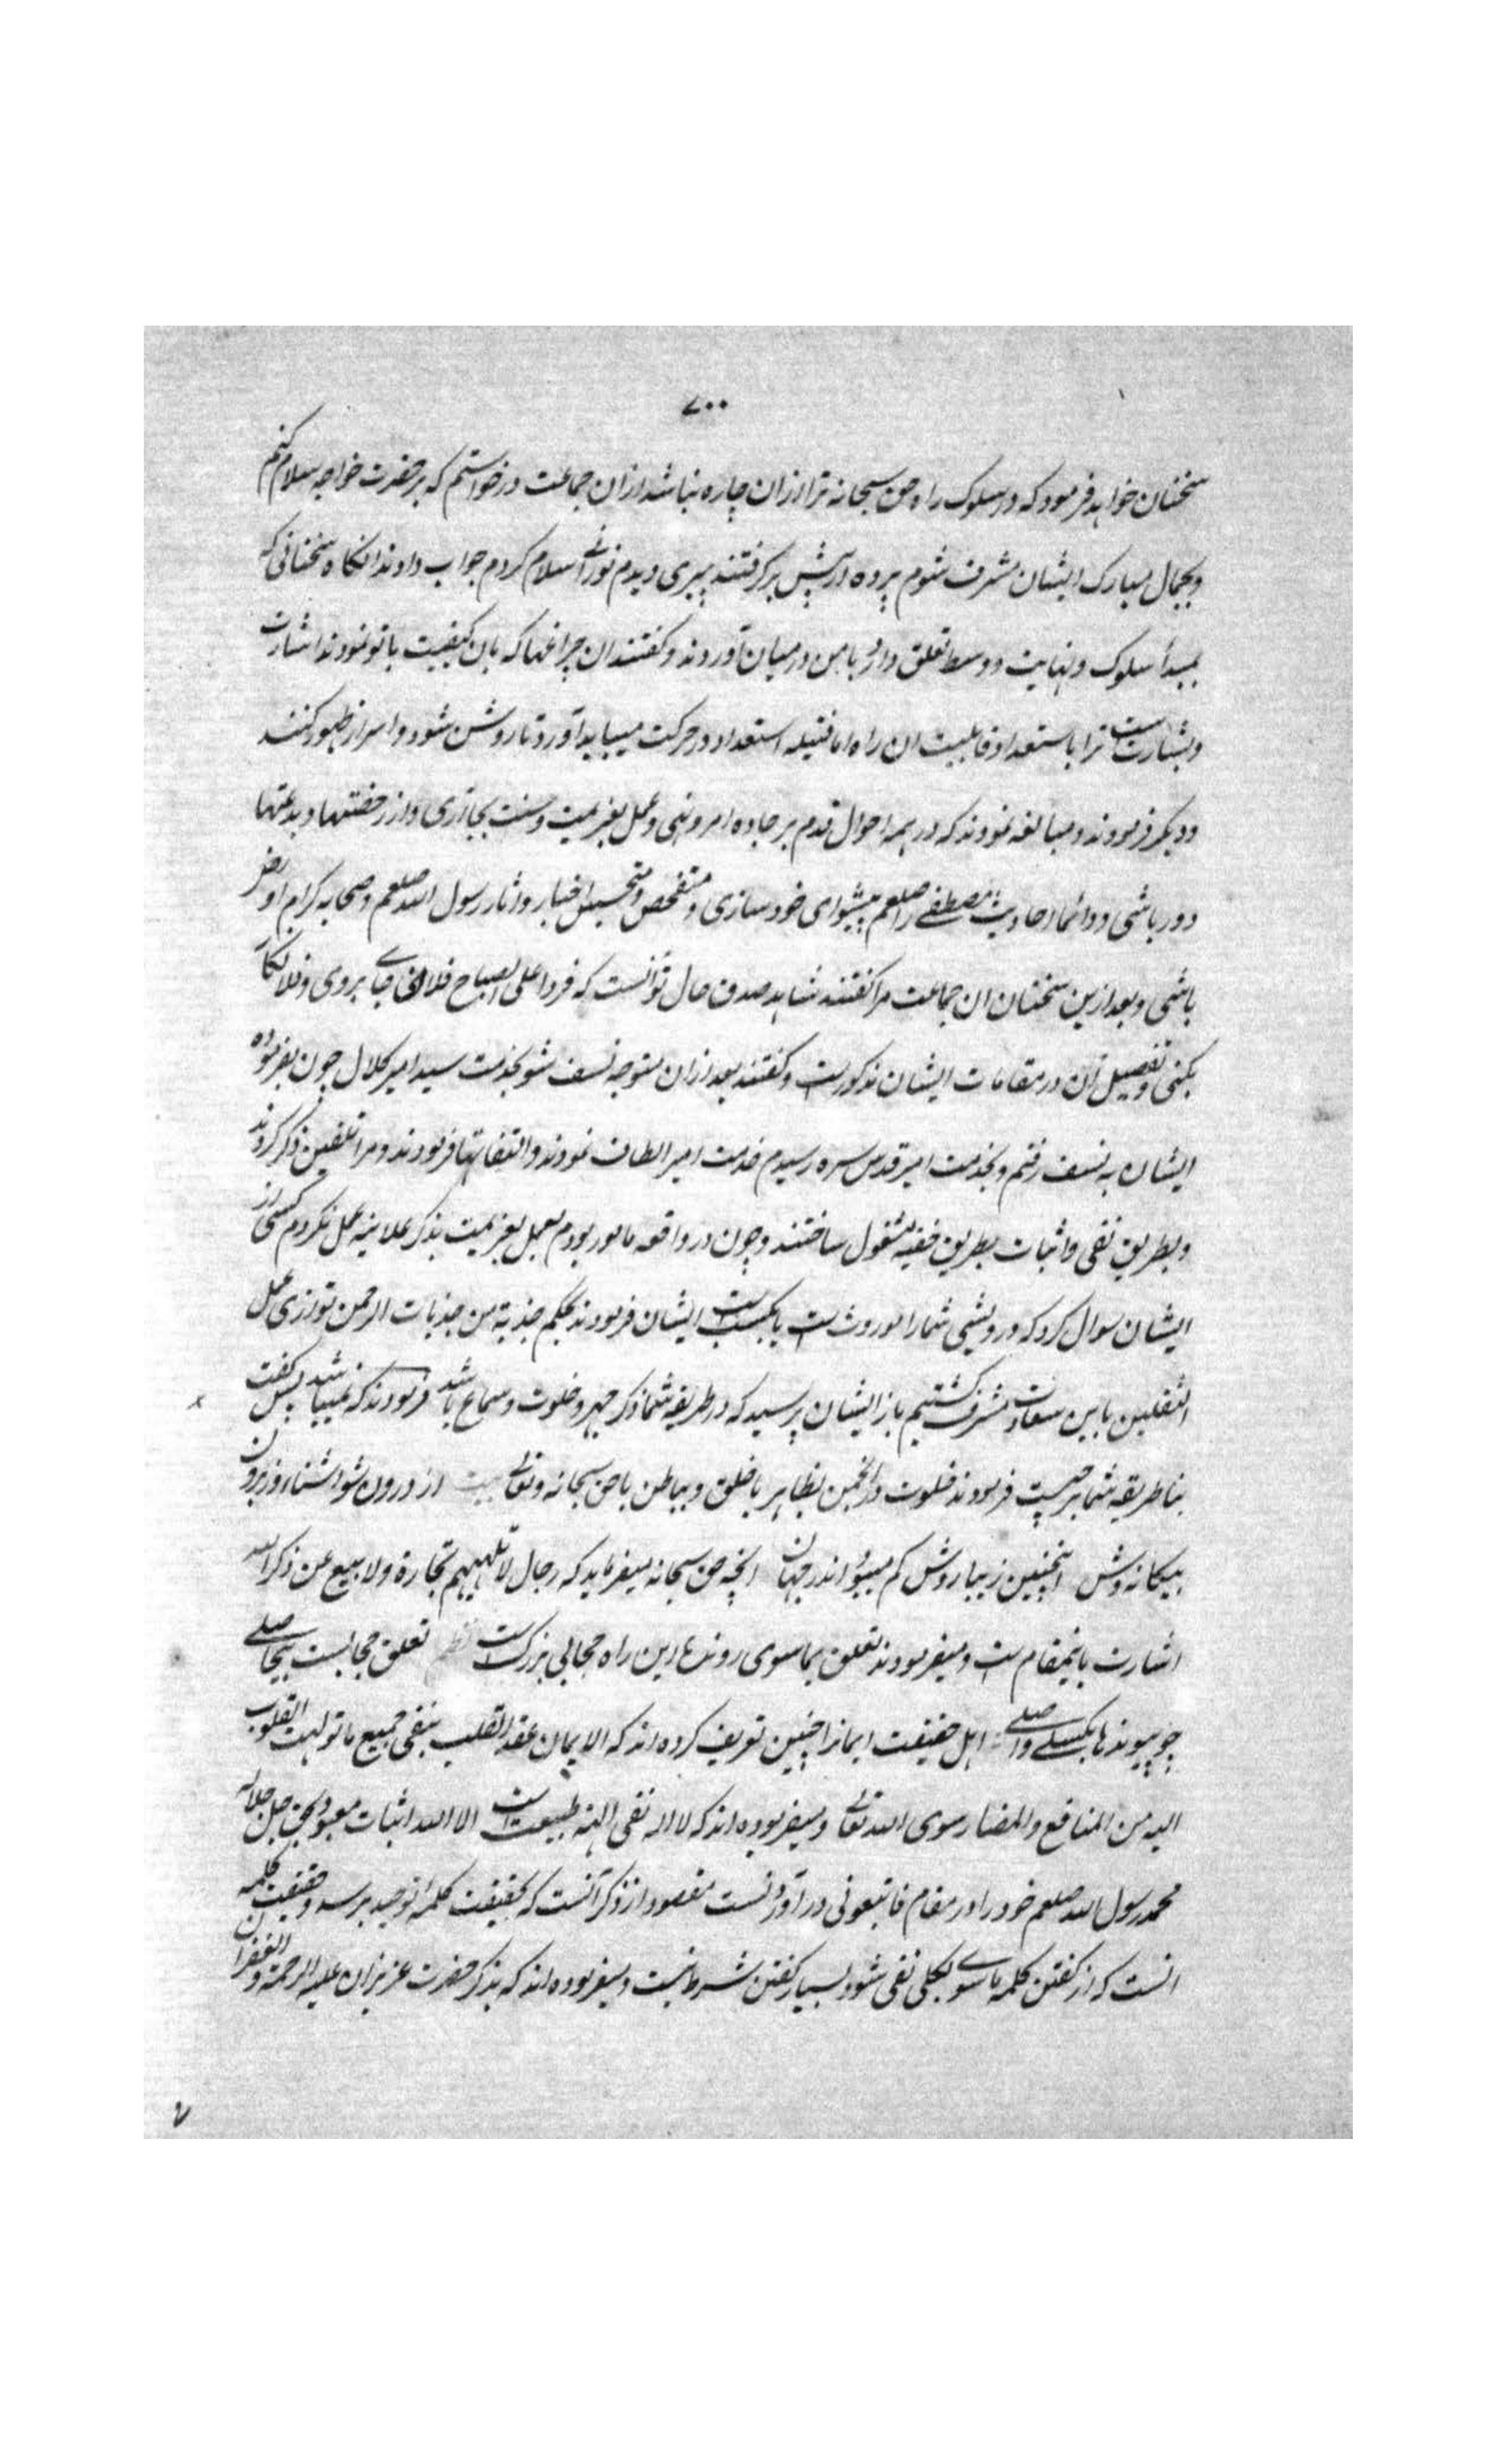 ۷۰۰
سخنان خواهد فرمود که در سلوک راه حق سبحانه ترا ازان چاره نباشد ازان جماعت درخواستم که بر حضرت خواجه سلام کنم
و بجمال مبارک ایشان مشرف شوم پرده از پیش برگرفتند پیری دیدم نورانی سلام کردم جواب دادند انگاه سخنانی که
بمبدأ سلوک و نهایت و وسط تعلق دارد با من درمیان آوردند و گفتند ان چراغها که بان کیفیت باتو نمودند اشارت
و بشارتست ترا باستعداد و قابلیت ان راه اما فتیله استعداد در حرکت میباید آورد تا روشن شود و اسرار ظهور کنند
و دیگر فرمودند و مبالغه نمودند که در همه احوال قدم بر جاده امر و نهی و عمل بعزیمت و سنت بجا آری و از رخصتها و بدعتها
دور باشی و دائما احادیث مصطفی را صلعم پیشوای خود سازی و متفحص و متجسس اخبار و اثار رسول الله صلعم و صحابه کرام او رض
باشی و بعد ازین سخنان ان جماعت مرا گفتند شاهد صدق حال تو آنست که فردا علی الصباح فلان جای بروی و فلان کار
بکنی و تفصیل آن در مقامات ایشان مذکورست و گفتند بعد ازان متوجه نسف شو بخدمت سید امیر کلال چون بفرموده
ایشان به نسف رفتم و بخدمت امیر قدس سره رسیدم خدمت امیر الطاف نمودند و التفاتها فرمودند و مرا تلقین ذکر کردند
و بطریق نفی و اثبات بطریق خفیه مشغول ساختند و چون در واقعه مامور بودم بعمل بعزیمت بذکر علانیه عمل نکردم کسی از
ایشان سوال کرد که درویشی شما را موروث است یا مکتسب است ایشان فرمودند بحکم جذبة من جذبات الرحمن توازی عمل
الثقلین باین سعادت مشرف گشتیم باز ایشان پرسید که در طریقه شما ذکر جهر و خلوت و سماع باشد فرمودند که نمیباشد پس گفت
بنا طریقه شما بر چیست فرمودند خلوت در انجمن بظاهر با خلق و بباطن با حق سبحانه و تعالی بیت از درون شو اشنا و ز برون
بیگانه وش اینچنین زیبا روش کم میبود اندر جهان انچه حق سبحانه میفرماید که رجال لا تلهیهم تجارة ولا بیع عن ذکر الله
اشارت باینمقام است و میفرمودند تعلق بماسوی رونده این راه حجابی بزرگ است نظم تعلق حجابست بیحاصلی
چو پیوندها بگسلی واصلی اهل حقیقت ایمانرا چنین تعریف کرده اند که الایمان عقد القلب بنفی جمیع ما تولهت القلوب
الیه من المنافع والمضار سوی الله تعالی و میفرموده اند که لا اله نفی الهه طبیعت است الا الله اثبات معبود بحق جل جلاله
محمد رسول الله صلعم خود را در مقام فاتبعونی در آوردنست مقصود از ذکر آنست که بحقیقت کلمه توحید برسد و حقیقت کلمه
انست که از گفتن کلمه ماسوی بکلی نفی شود بسیار گفتن شرط نیست و میفرموده اند که بذکر حضرت عزیزان علیه الرحمة والغفران